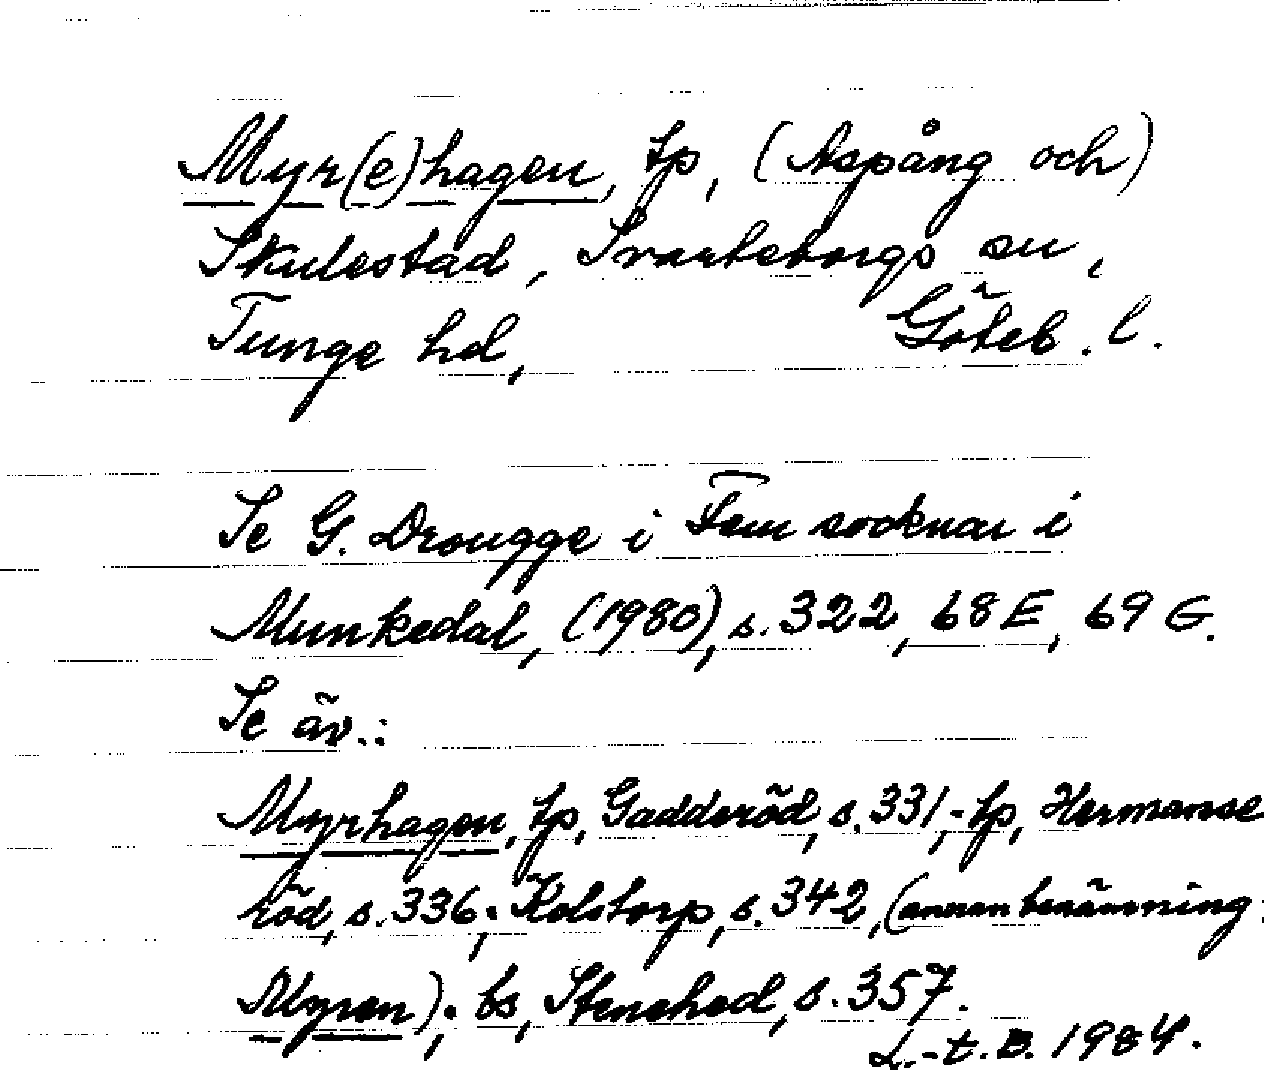 Myr(e)hagen, tp, (Aspång och)
Skulestad, Svarteborgs sn,
Tunge hd, Göteb. l.
Se G. Drougge i Fem socknar i
Munkedal, (1980), s. 322, 68 E, 69 G.
Se äv.:
Myrhagen, tp, Gadderöd, s. 331,- tp, Hermanse
röd, s. 336; Kolstorp, s. 342, (annan benämning:
Myren); bs, Stenehed, s. 357.
L.-t. B. 1984.